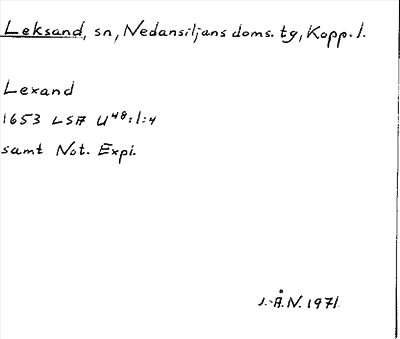 Leksand, sn, Nedansiljans doms. tg, Kopp. l.
Lexand
1653 LSA U48:1:4
samt Not. Expl.
J.-Å.N. 1971